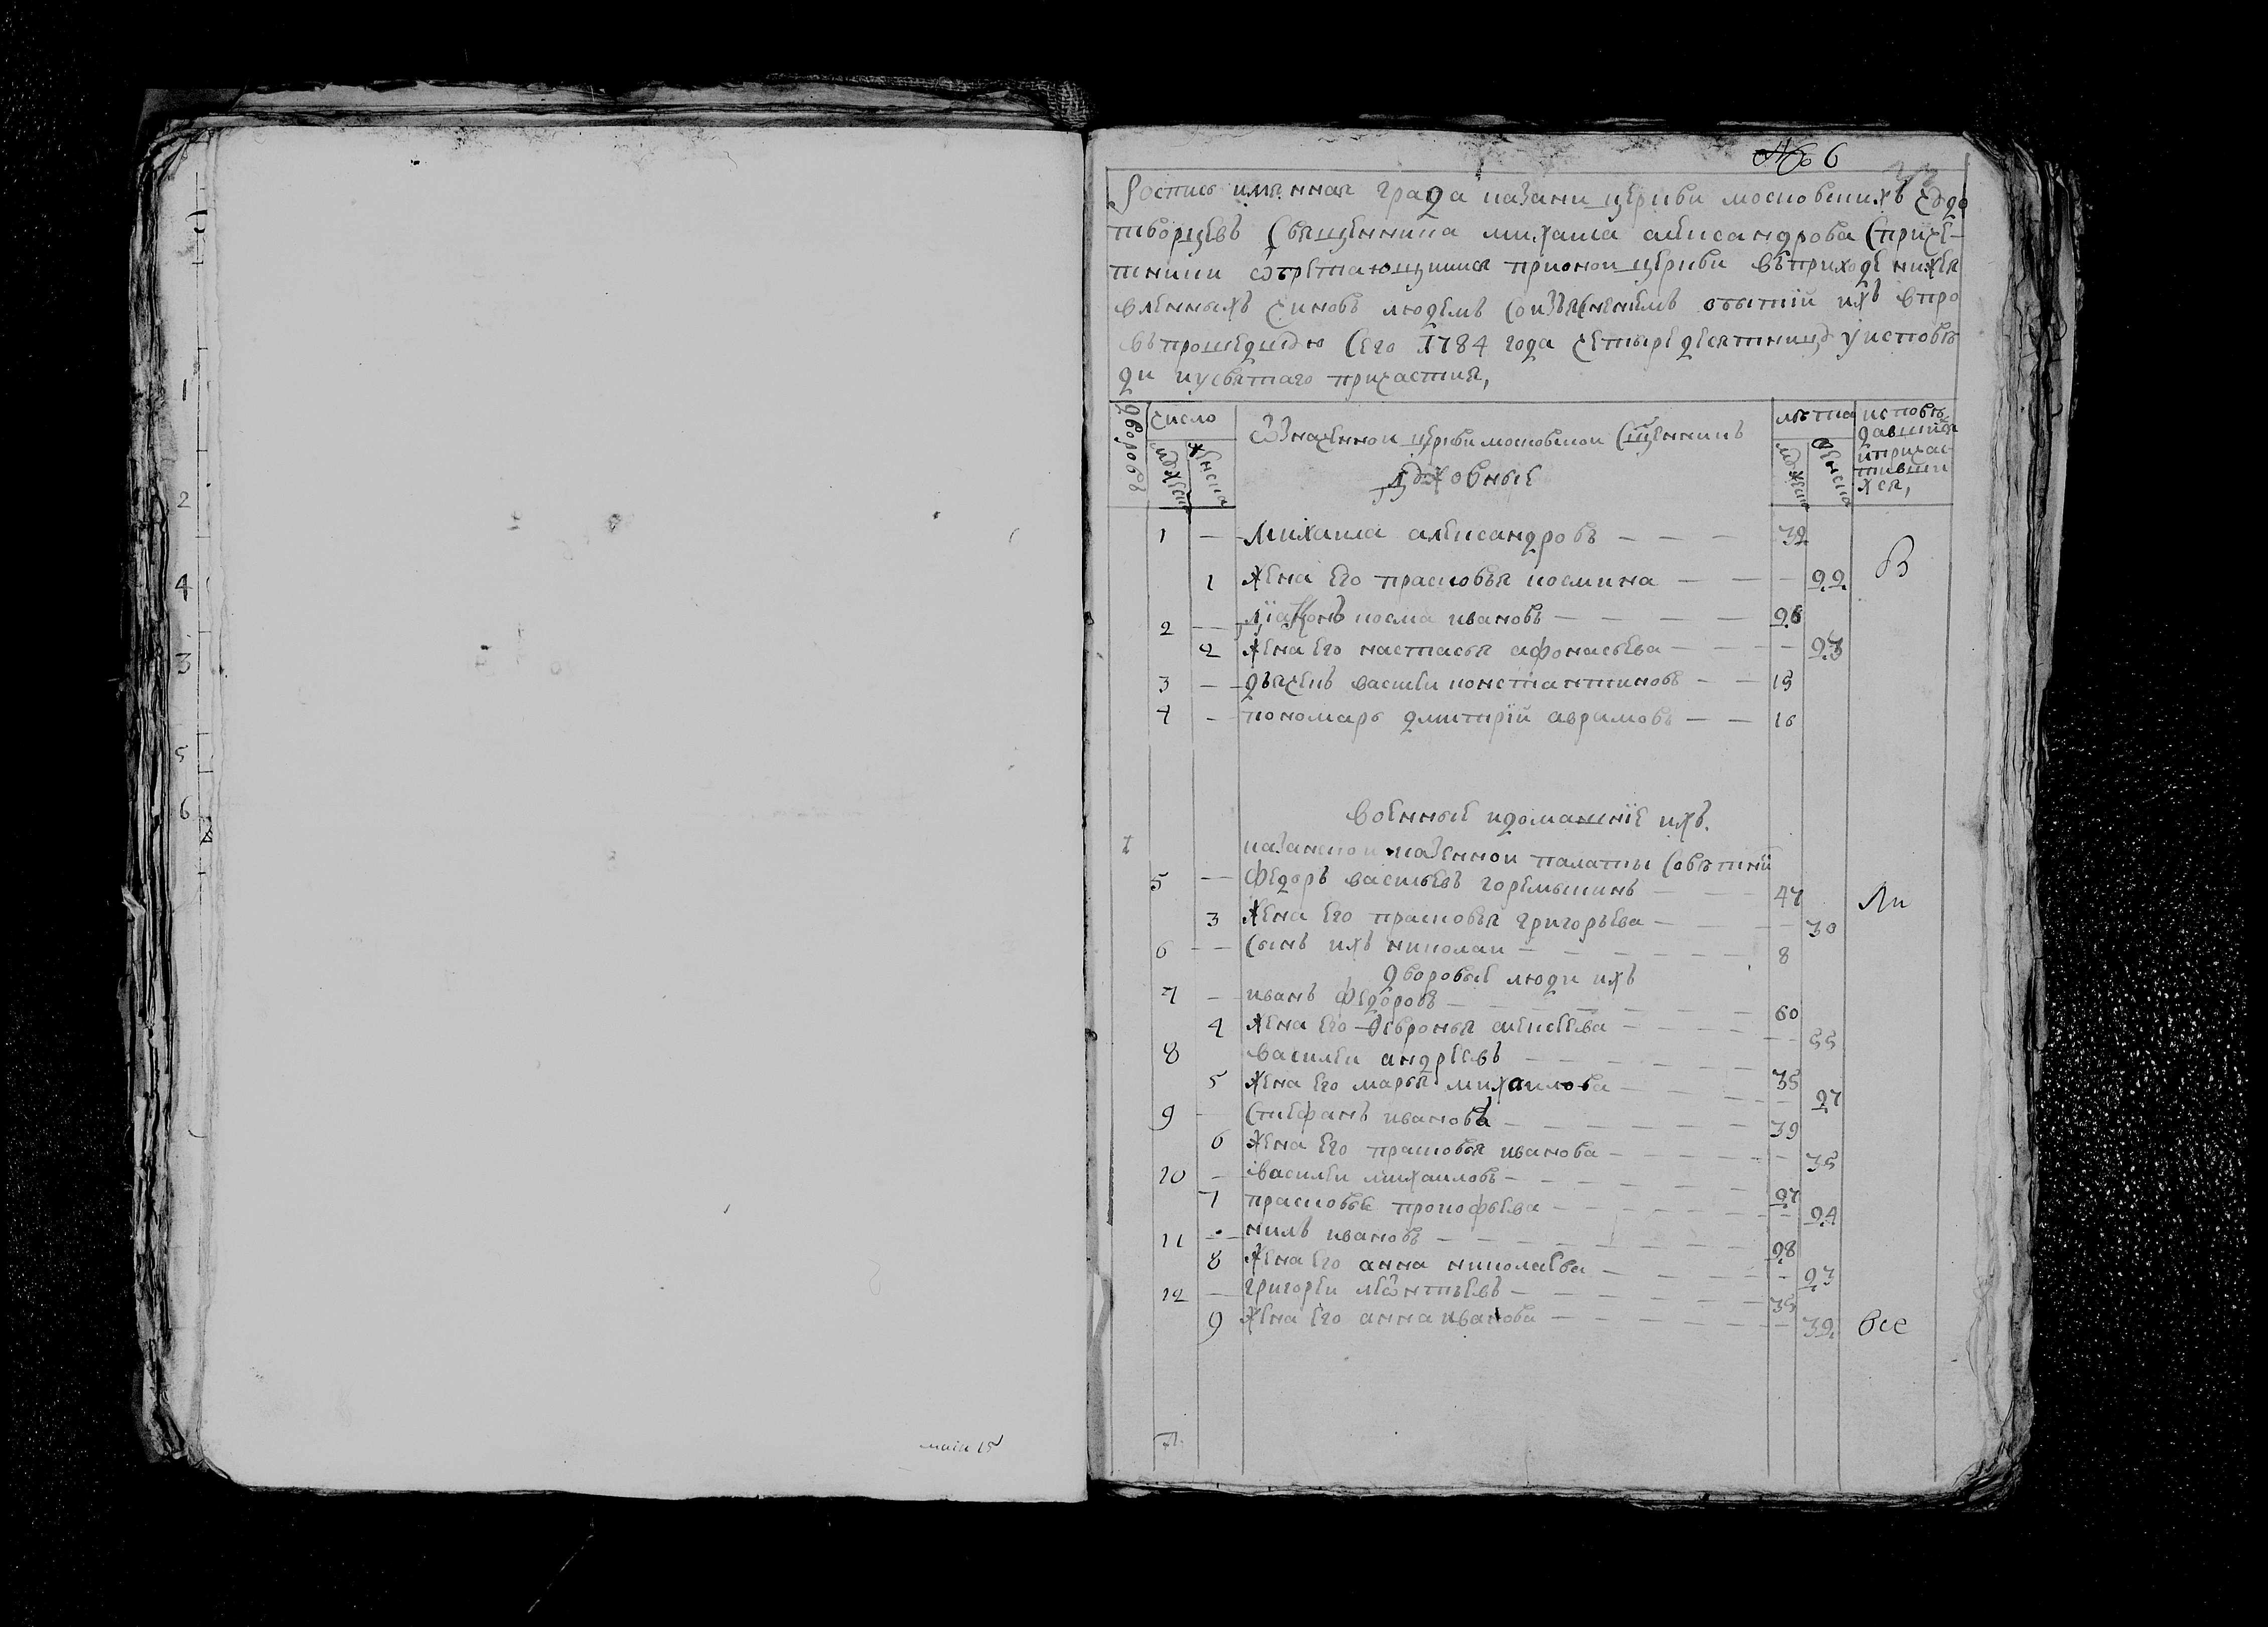 1
2
4
3
5
6
маiя 15
№ 6
Роспись имянная града казани церкви московскихъ чюдо
творцевъ священника михаила александрова с приче-
тники обретающимися при оной церкви въ приходе нижея
вленныхъ чиновъ людемъ со изъяснениемъ бытий ихъ впро
въ прошедшую сего 1784 года четыредесятницу у исповѣ
ди и у святаго причастия,
дворовъ
число
мужеск
женска
Означенной церкви московской сщенникъ
духовные
лѣта
мужеск
женска
исповѣ
давшихся
и причас
тивши
хся,
1 — Михаила александровъ — — — 32
1 жена его прасковья космина — — — 22 В
2 — діаконъ косма ивановъ — — — — 26
2 жена его настасья афонасьева — — — — 23
3 — дьячекъ василеи константиновъ — — 19
4 — пономарь дмитрій аврамовъ — — 16
военные и домашніе ихъ.
1 казанской казенной палаты советникъ
5 — федоръ васильевъ горемыкинъ — — — 47 Ли
3 жена его прасковья григорьева — — — — 30
6 — сынъ ихъ николаи — — — — — — 8
дворовые люди ихъ
7 — иванъ федоровъ — — — — — — — 60
4 жена его ѳевронья алексеева — — — — 55
8 василеи андреевъ — — — — — — 35
5 жена его марья михаилова — — — — — 27
9 — стефанъ иванова — — — — — — 39
6 жена его прасковья иванова — — — — — 35
10 — василеи михаиловъ — — — — — — 27
7 прасковье прокофьева — — — — — — 24
11 — нилъ ивановъ — — — — — — — — 28
8 жена его анна николаева — — — — — 23
12 — григореи леонтьевъ — — — — — — 35
9 жена его анна иванова — — — — — — 32 все